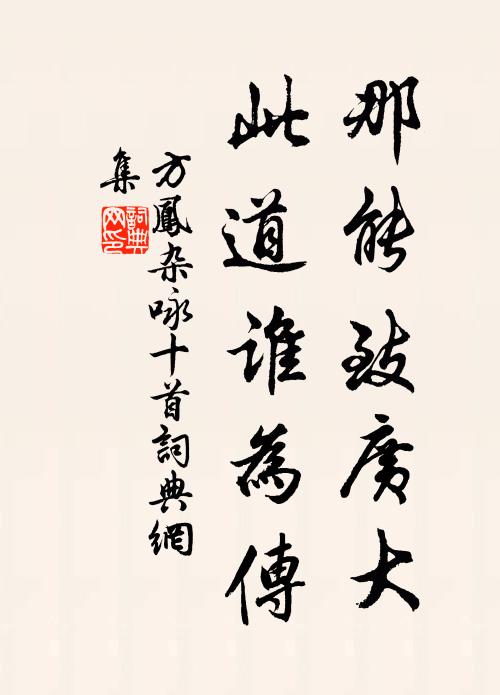 那能致廣大
此道誰為傳
方鳳杂咏十首詞典網
集
詞典
网印